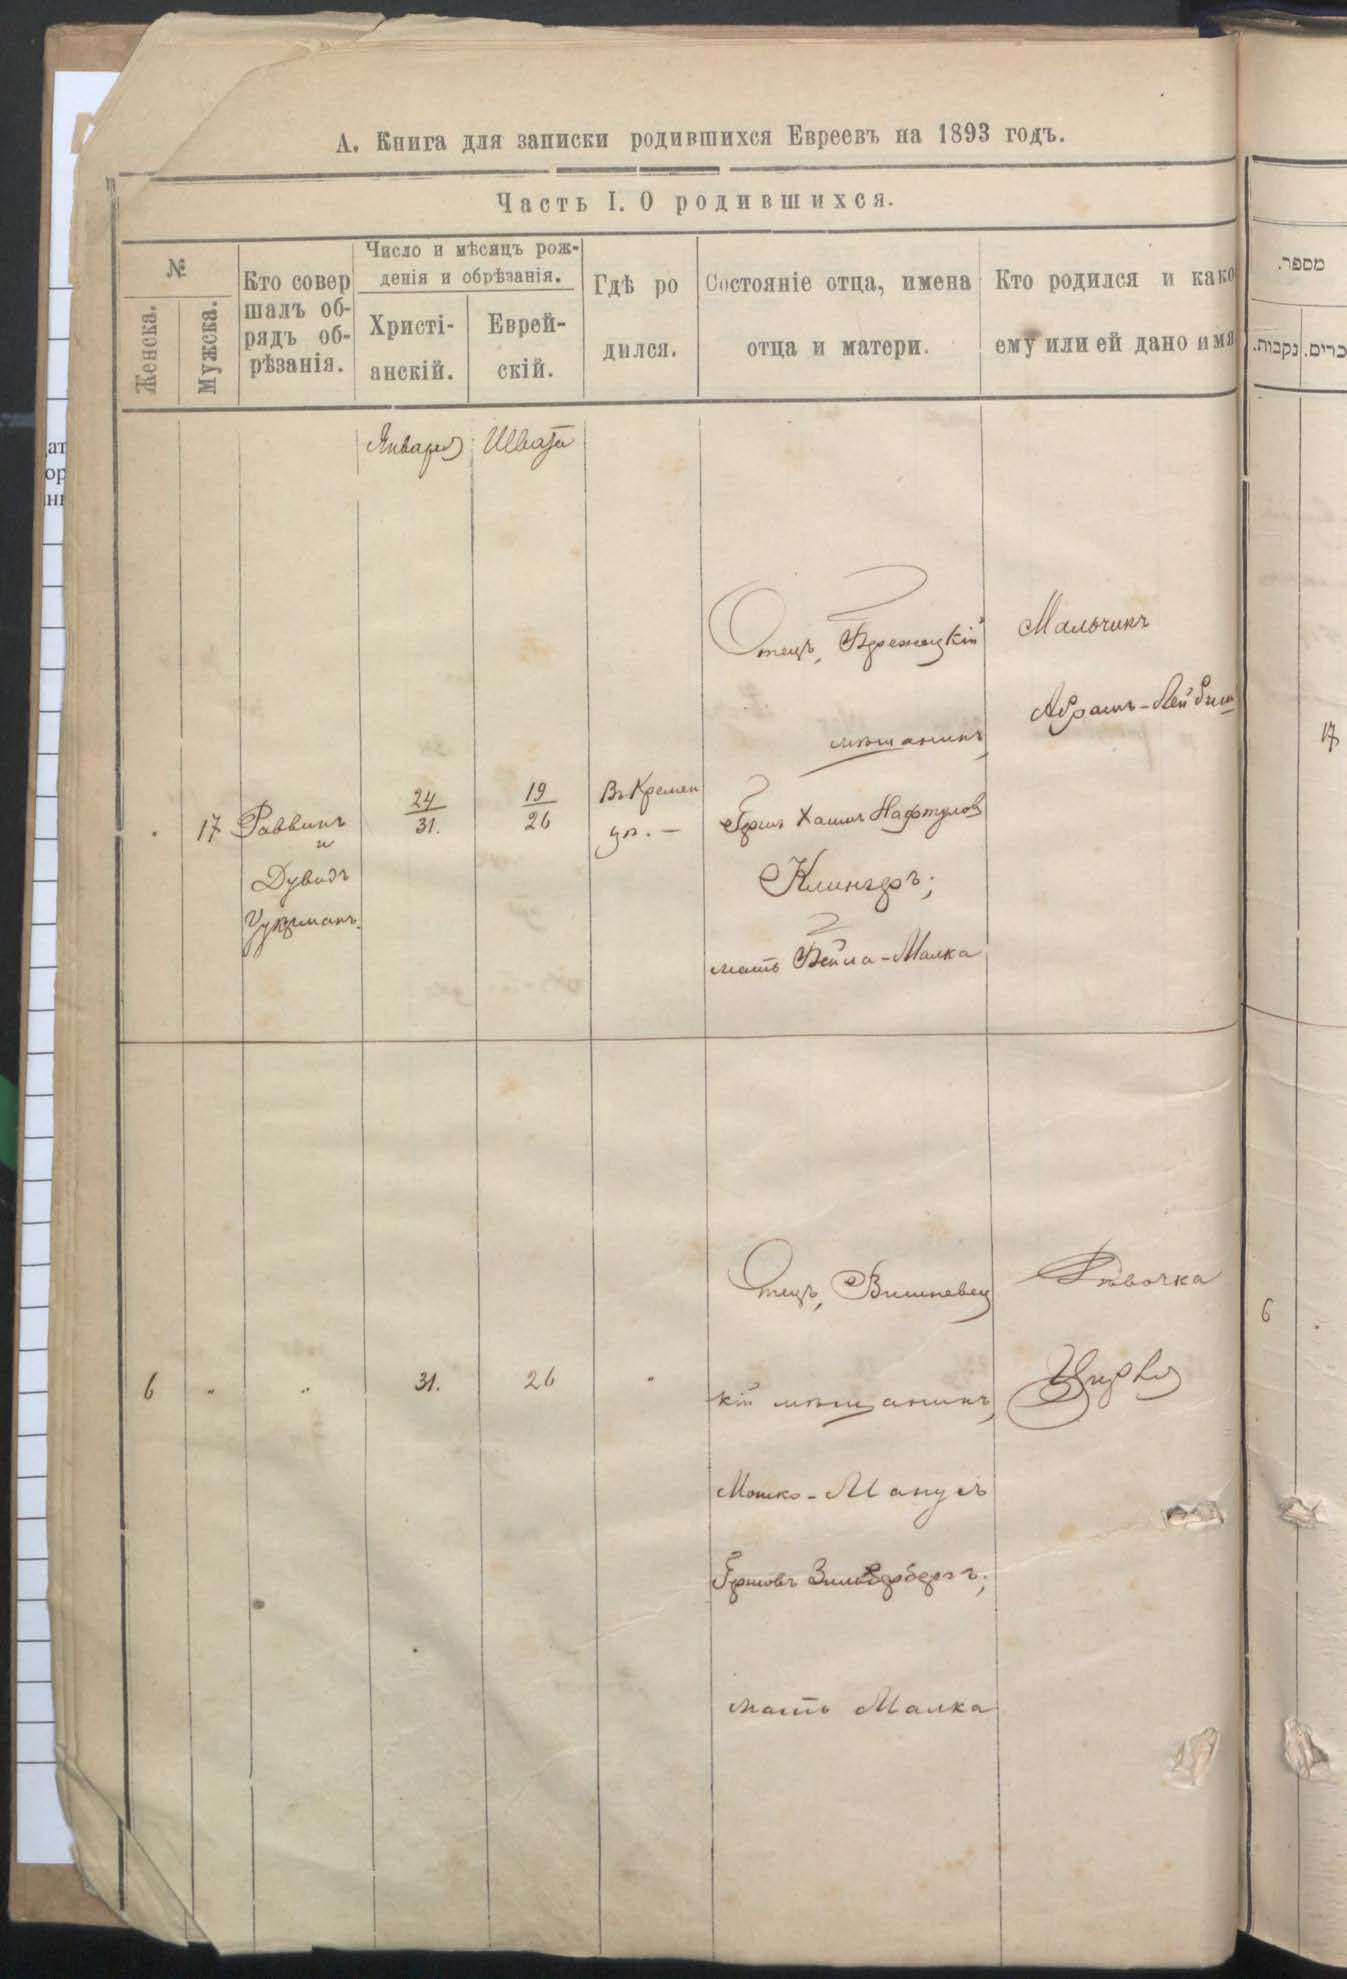 А. Книга для записки родившихся Евреевъ на 1893 годъ.
Часть I. О родившихся.
№
Женска.
Мужска.
Кто совер
шалъ об-
рядъ об-
рѣзанія.
Число и мѣсяцъ рож-
денія и обрѣзанія.
Христі-
анскій.
Еврей-
скій.
Гдѣ ро
дился.
Состояніе отца, имена
отца и матери.
Кто родился и како
ему или ей дано имя
Января
Швата
17
Раввинъ
и
Дувидъ
Цукрманъ.
24
31.
19
26
Въ Кремен
цѣ. —
Отецъ, Бережецкій
мѣщанинъ,
Гершъ Хаимъ Нафтулов
Клингеръ;
мать Бейла-Малка
Мальчикъ
Абрамъ-Лейбиш
6
"
"
31.
26
"
Отецъ, Вишневец
кій мѣщанинъ,
Мошко-Манусъ
Гершовъ Зильберберъ;
мать Малка
Дѣвочка
מספר.
נקבות.
כרים.
17
6
ат
ор
ні